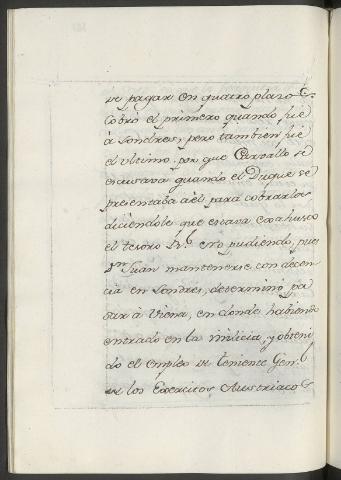 se pagar en quatro plazos.
Cobró el primero quando fue
à Londres, pero tambien fue
el ultimo: por que Carvallo se
escusava quando el Duque se
presentaba à èl para cobrarlos
diciendole que estava exahusto
el tesoro Rl. no pudiendo, pues
Dn Juan mantenerse con decen
cia en Londres, determinó pa
sar à Viena, en donde habiendo
entrado en la milicia, y obteni
do el empleo de teniente Genl.
de los Exercitos Austriacos